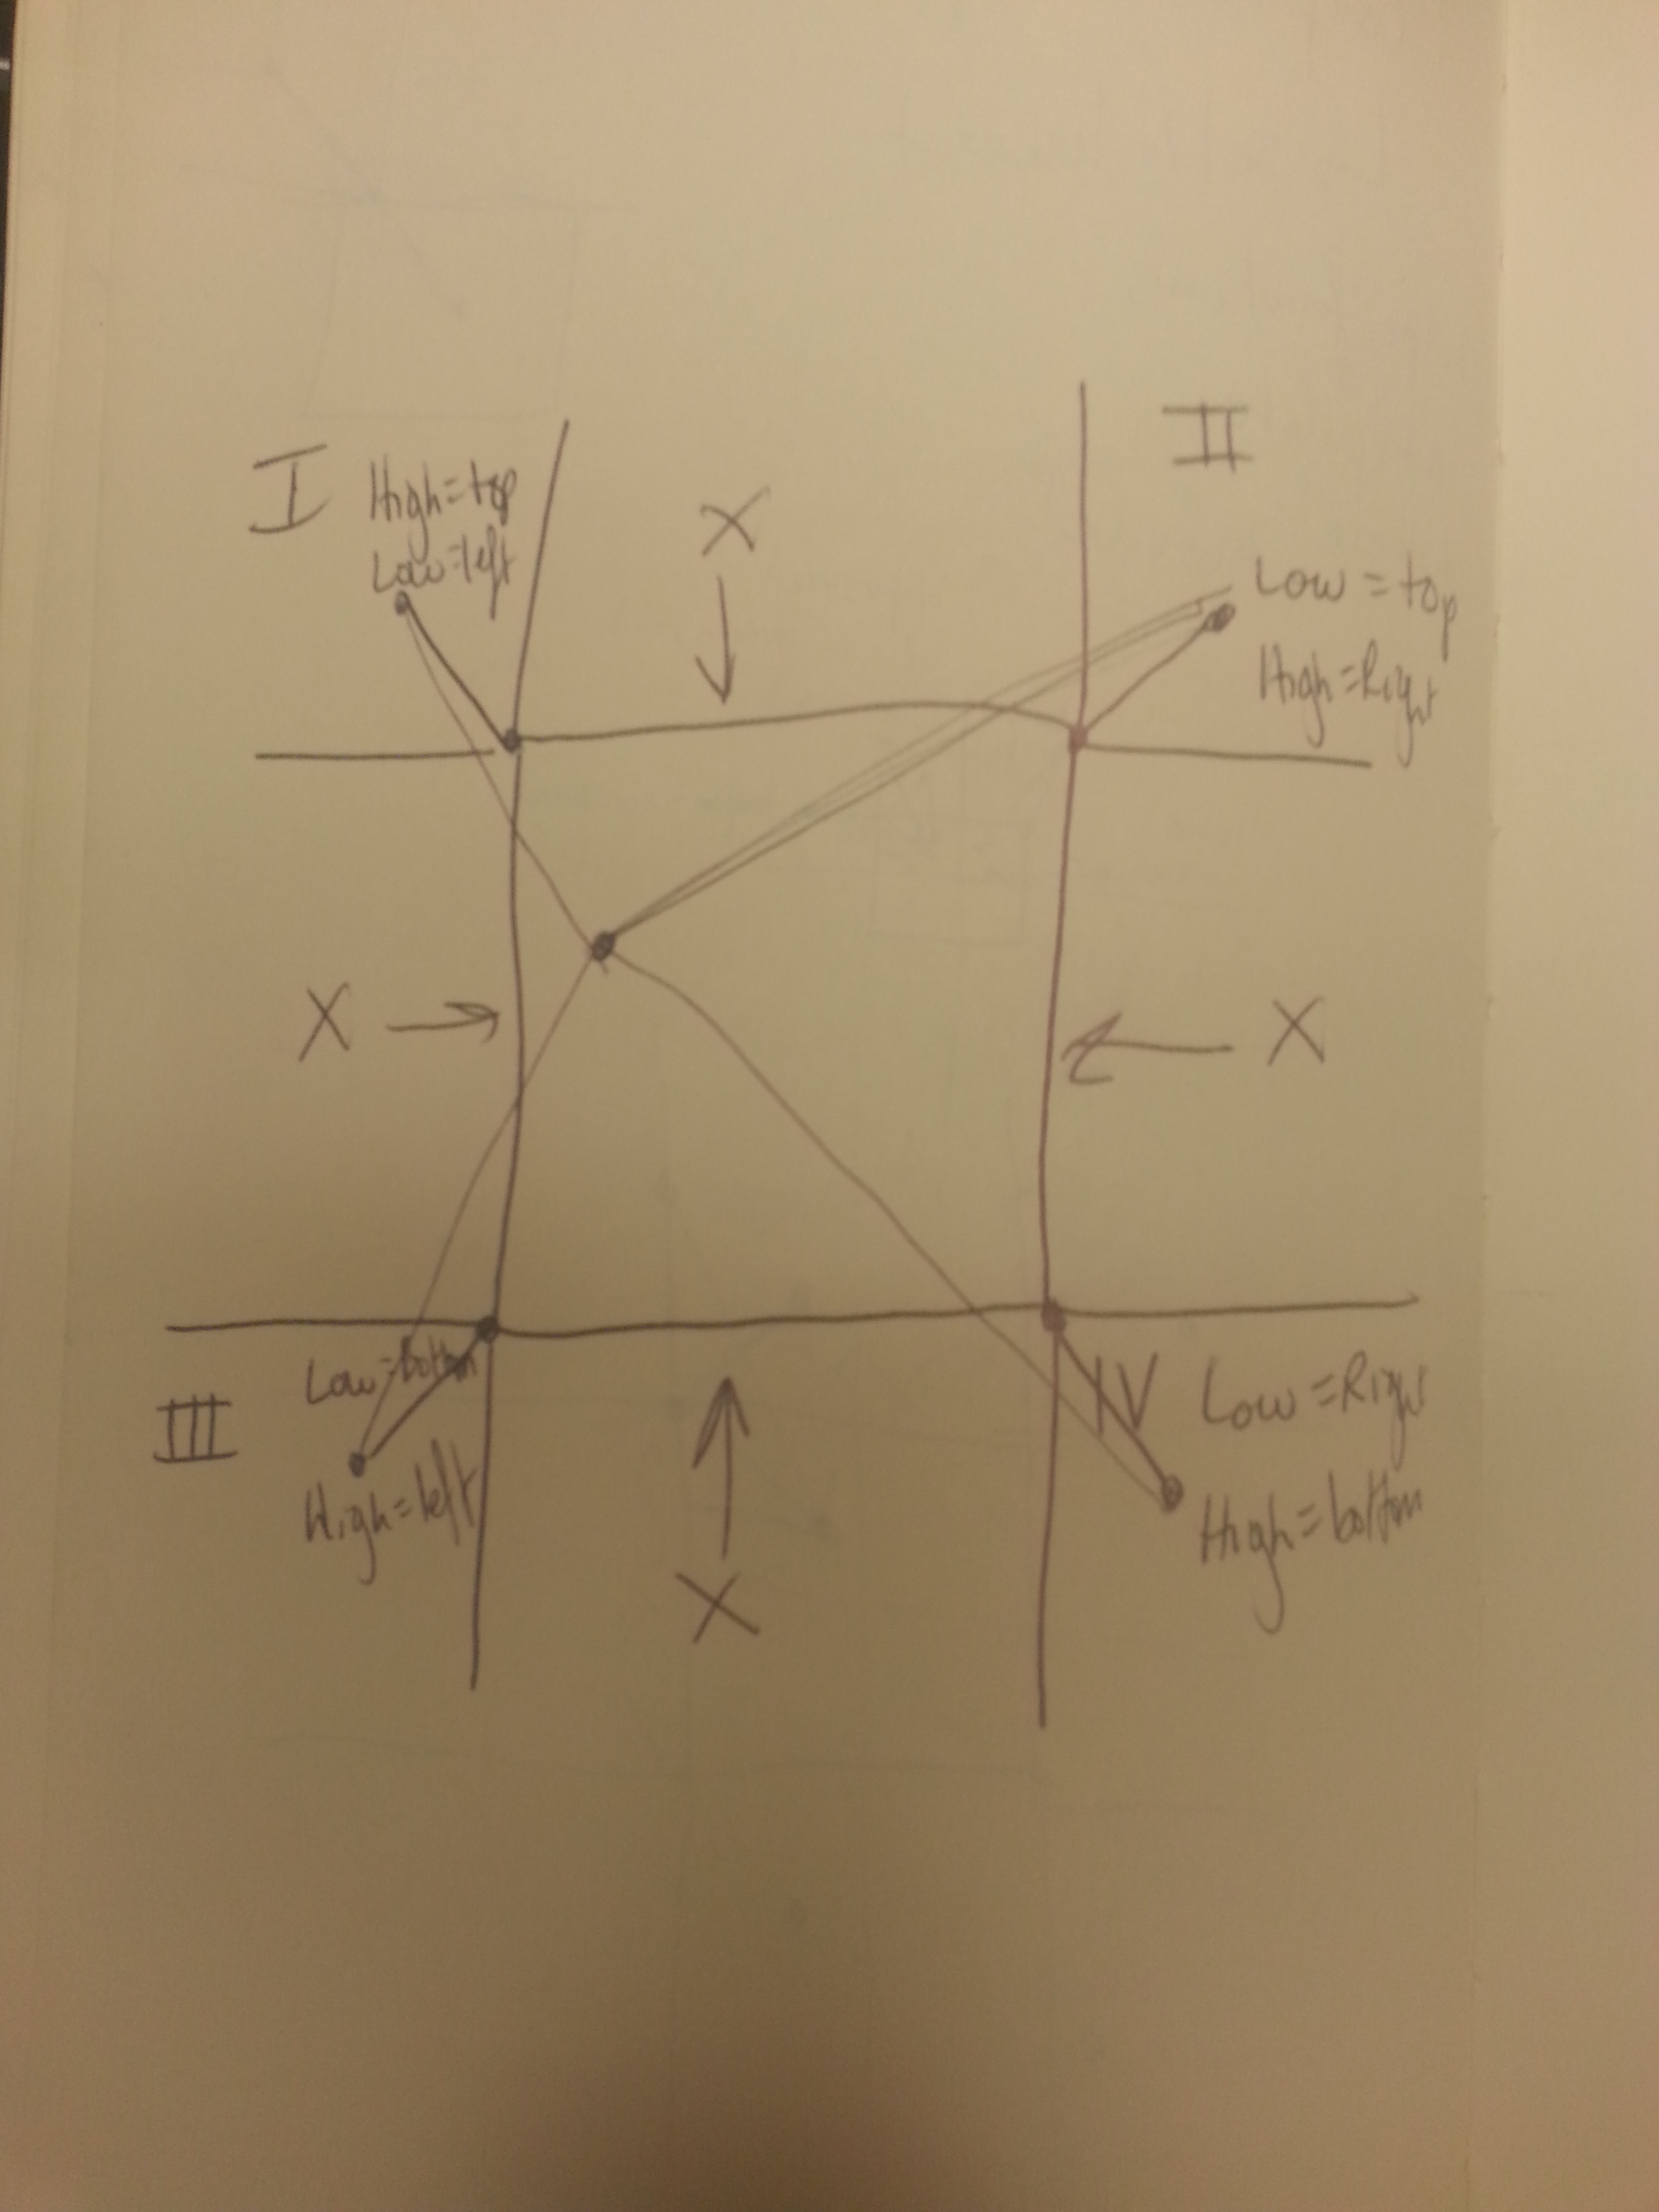 I
High=top
Low=left
II
X
Low = top
High=Right
X
X
Low=bottom
III
High=left
IV
Low=Right
High=bottom
X